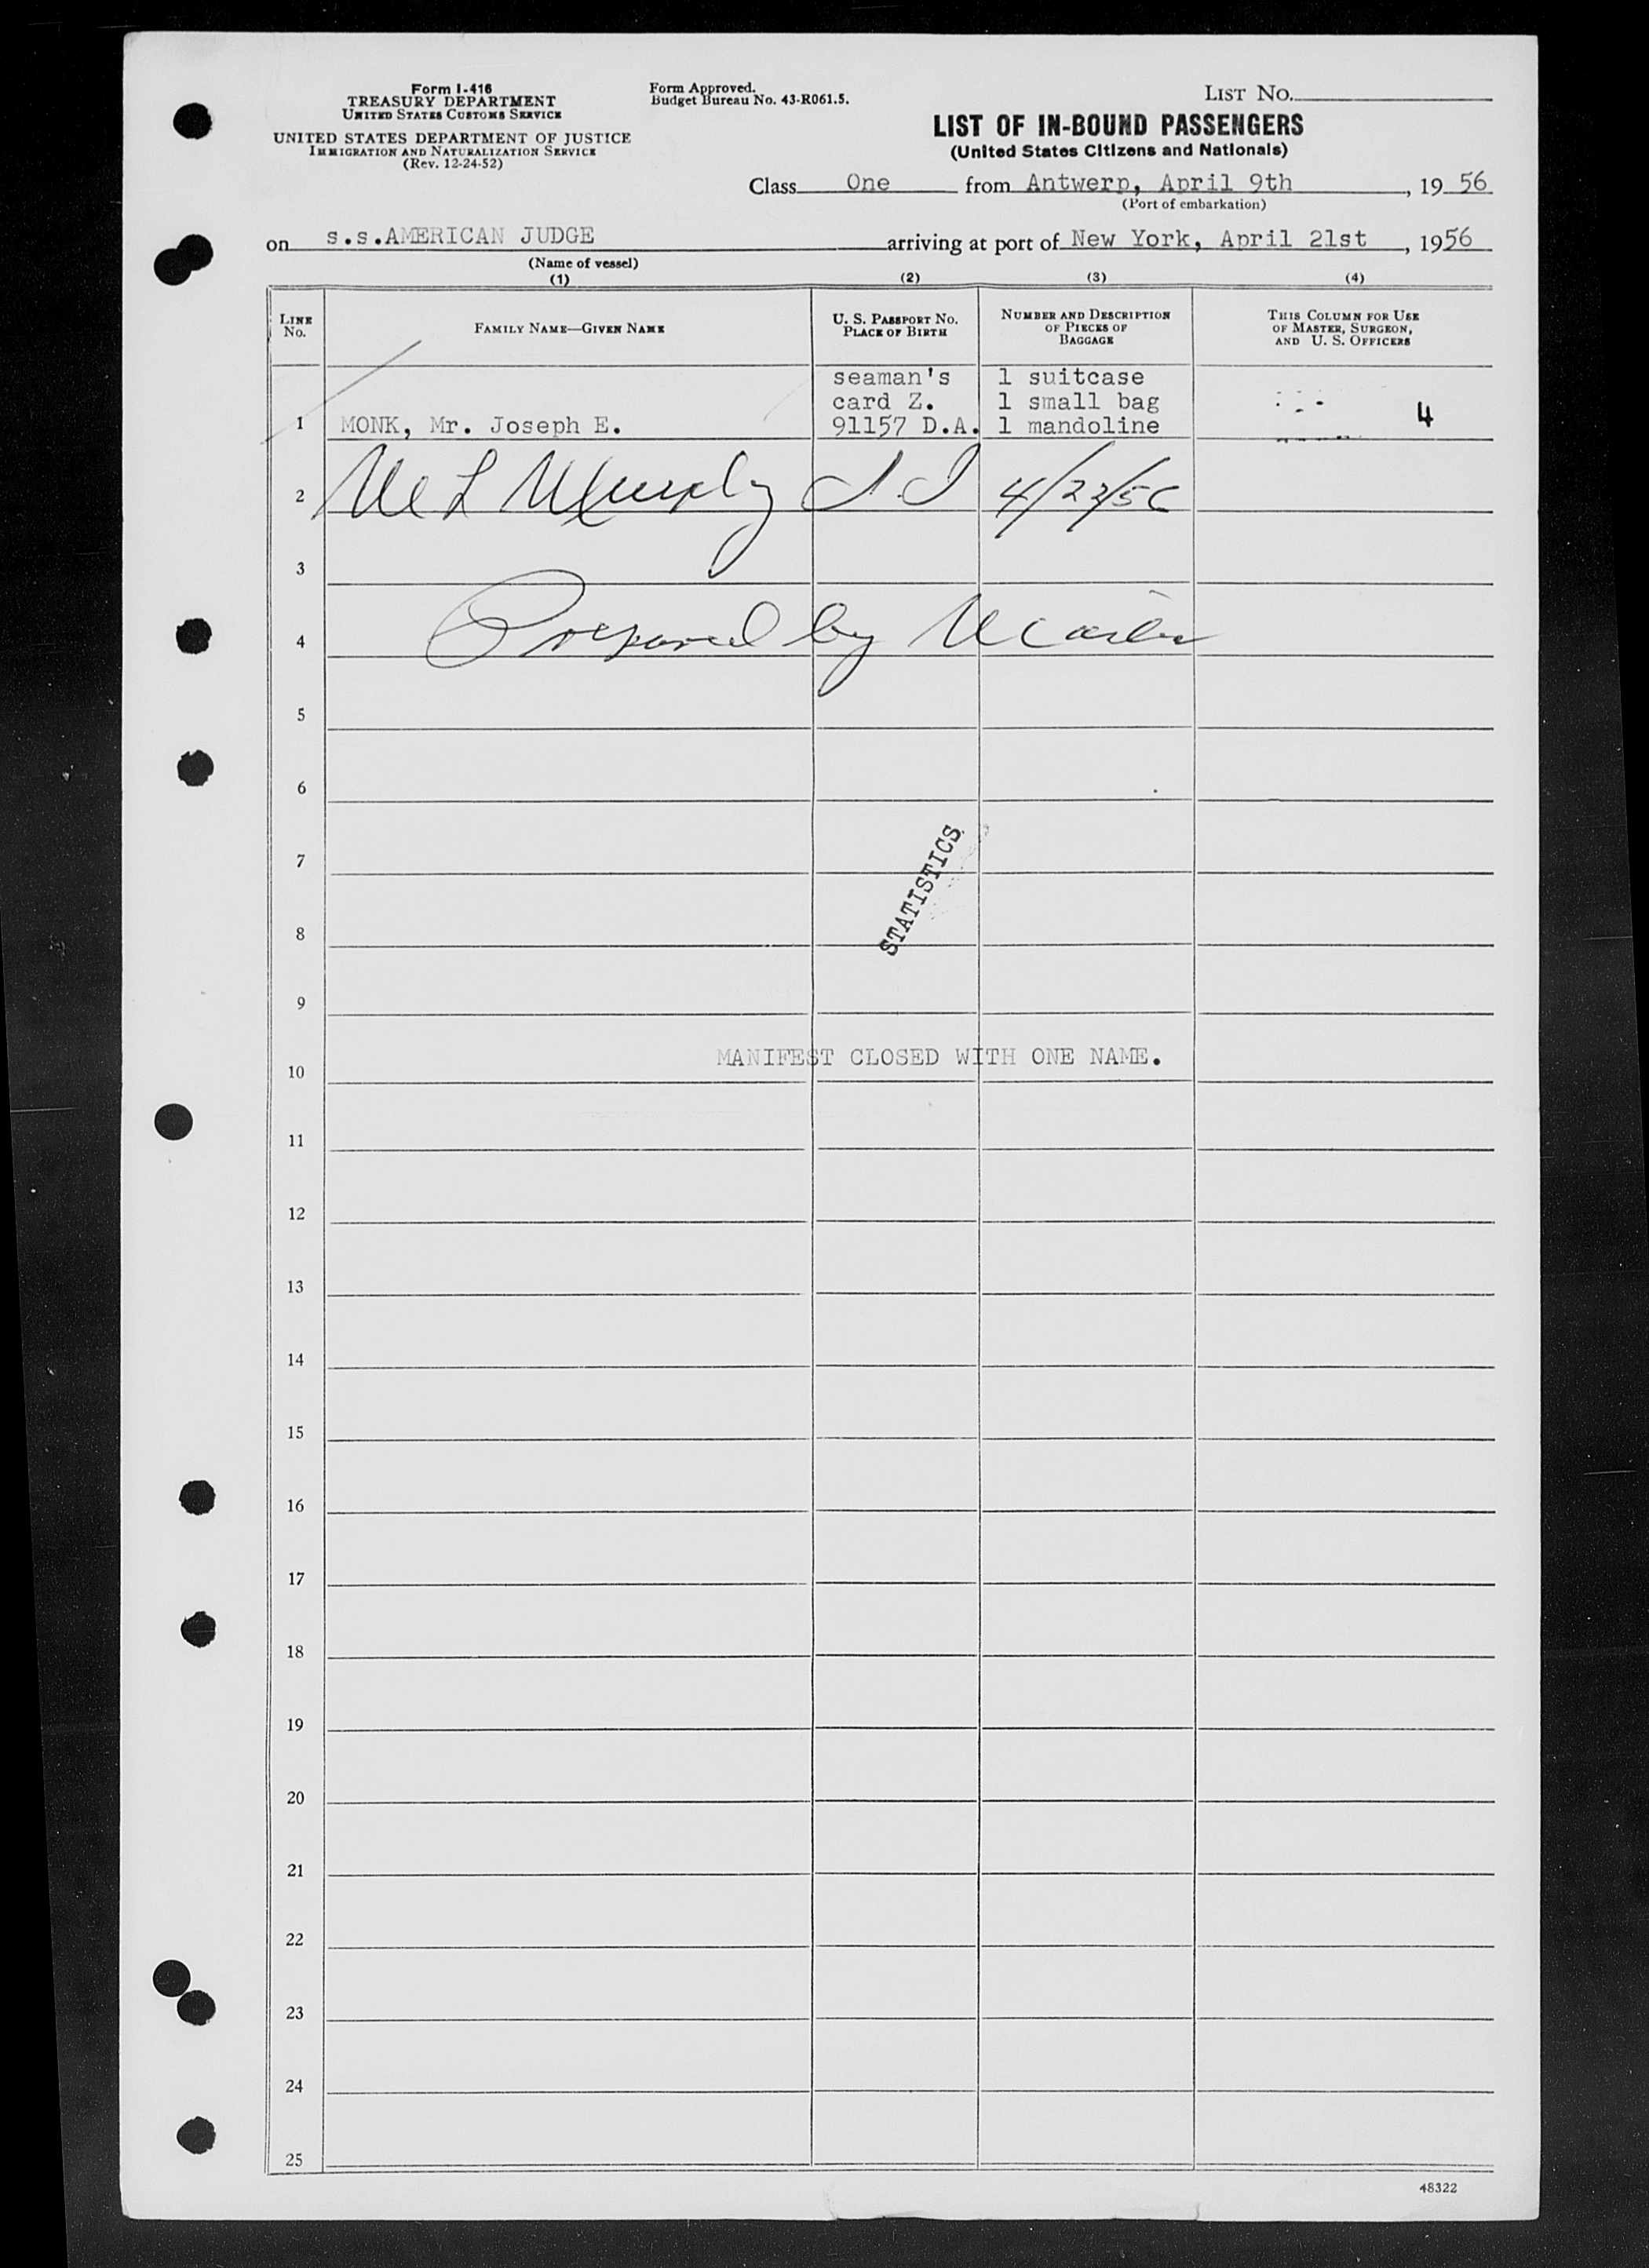 Form I-416
TREASURY DEPARTMENT
UNITED STATES CUSTOMS SERVICE
UNITED STATES DEPARTMENT OF JUSTICE
IMMIGRATION AND NATURALIZATION SERVICE
(Rev. 12-24-52)
Form Approved.
Budget Bureau No. 43-R061.5.
LIST NO.
LIST OF IN-BOUND PASSENGERS
(United States Citizens and Nationals)
Class One from Antwerp, April 9th, 19 56
(Port of embarkation)
on s.s.AMERICAN JUDGE arriving at port of New York, April 21st, 1956
(Name of vessel)
(1) (2) (3) (4)
LINE No.
FAMILY NAME—GIVEN NAME
U. S. PASSPORT NO.
PLACE OF BIRTH
NUMBER AND DESCRIPTION
OF PIECES OF
BAGGAGE
THIS COLUMN FOR USE
OF MASTER, SURGEON,
AND U. S. OFFICERS
seaman's 1 suitcase
card Z. 1 small bag
1 MONK, Mr. Joseph E. 91157 D.A. 1 mandoline 4
2 Murphy
3
4 Prepared by
5
6
7
STATISTICS
8
9
MANIFEST CLOSED WITH ONE NAME.
10
11
12
13
14
15
16
17
18
19
20
21
22
23
24
25
48322